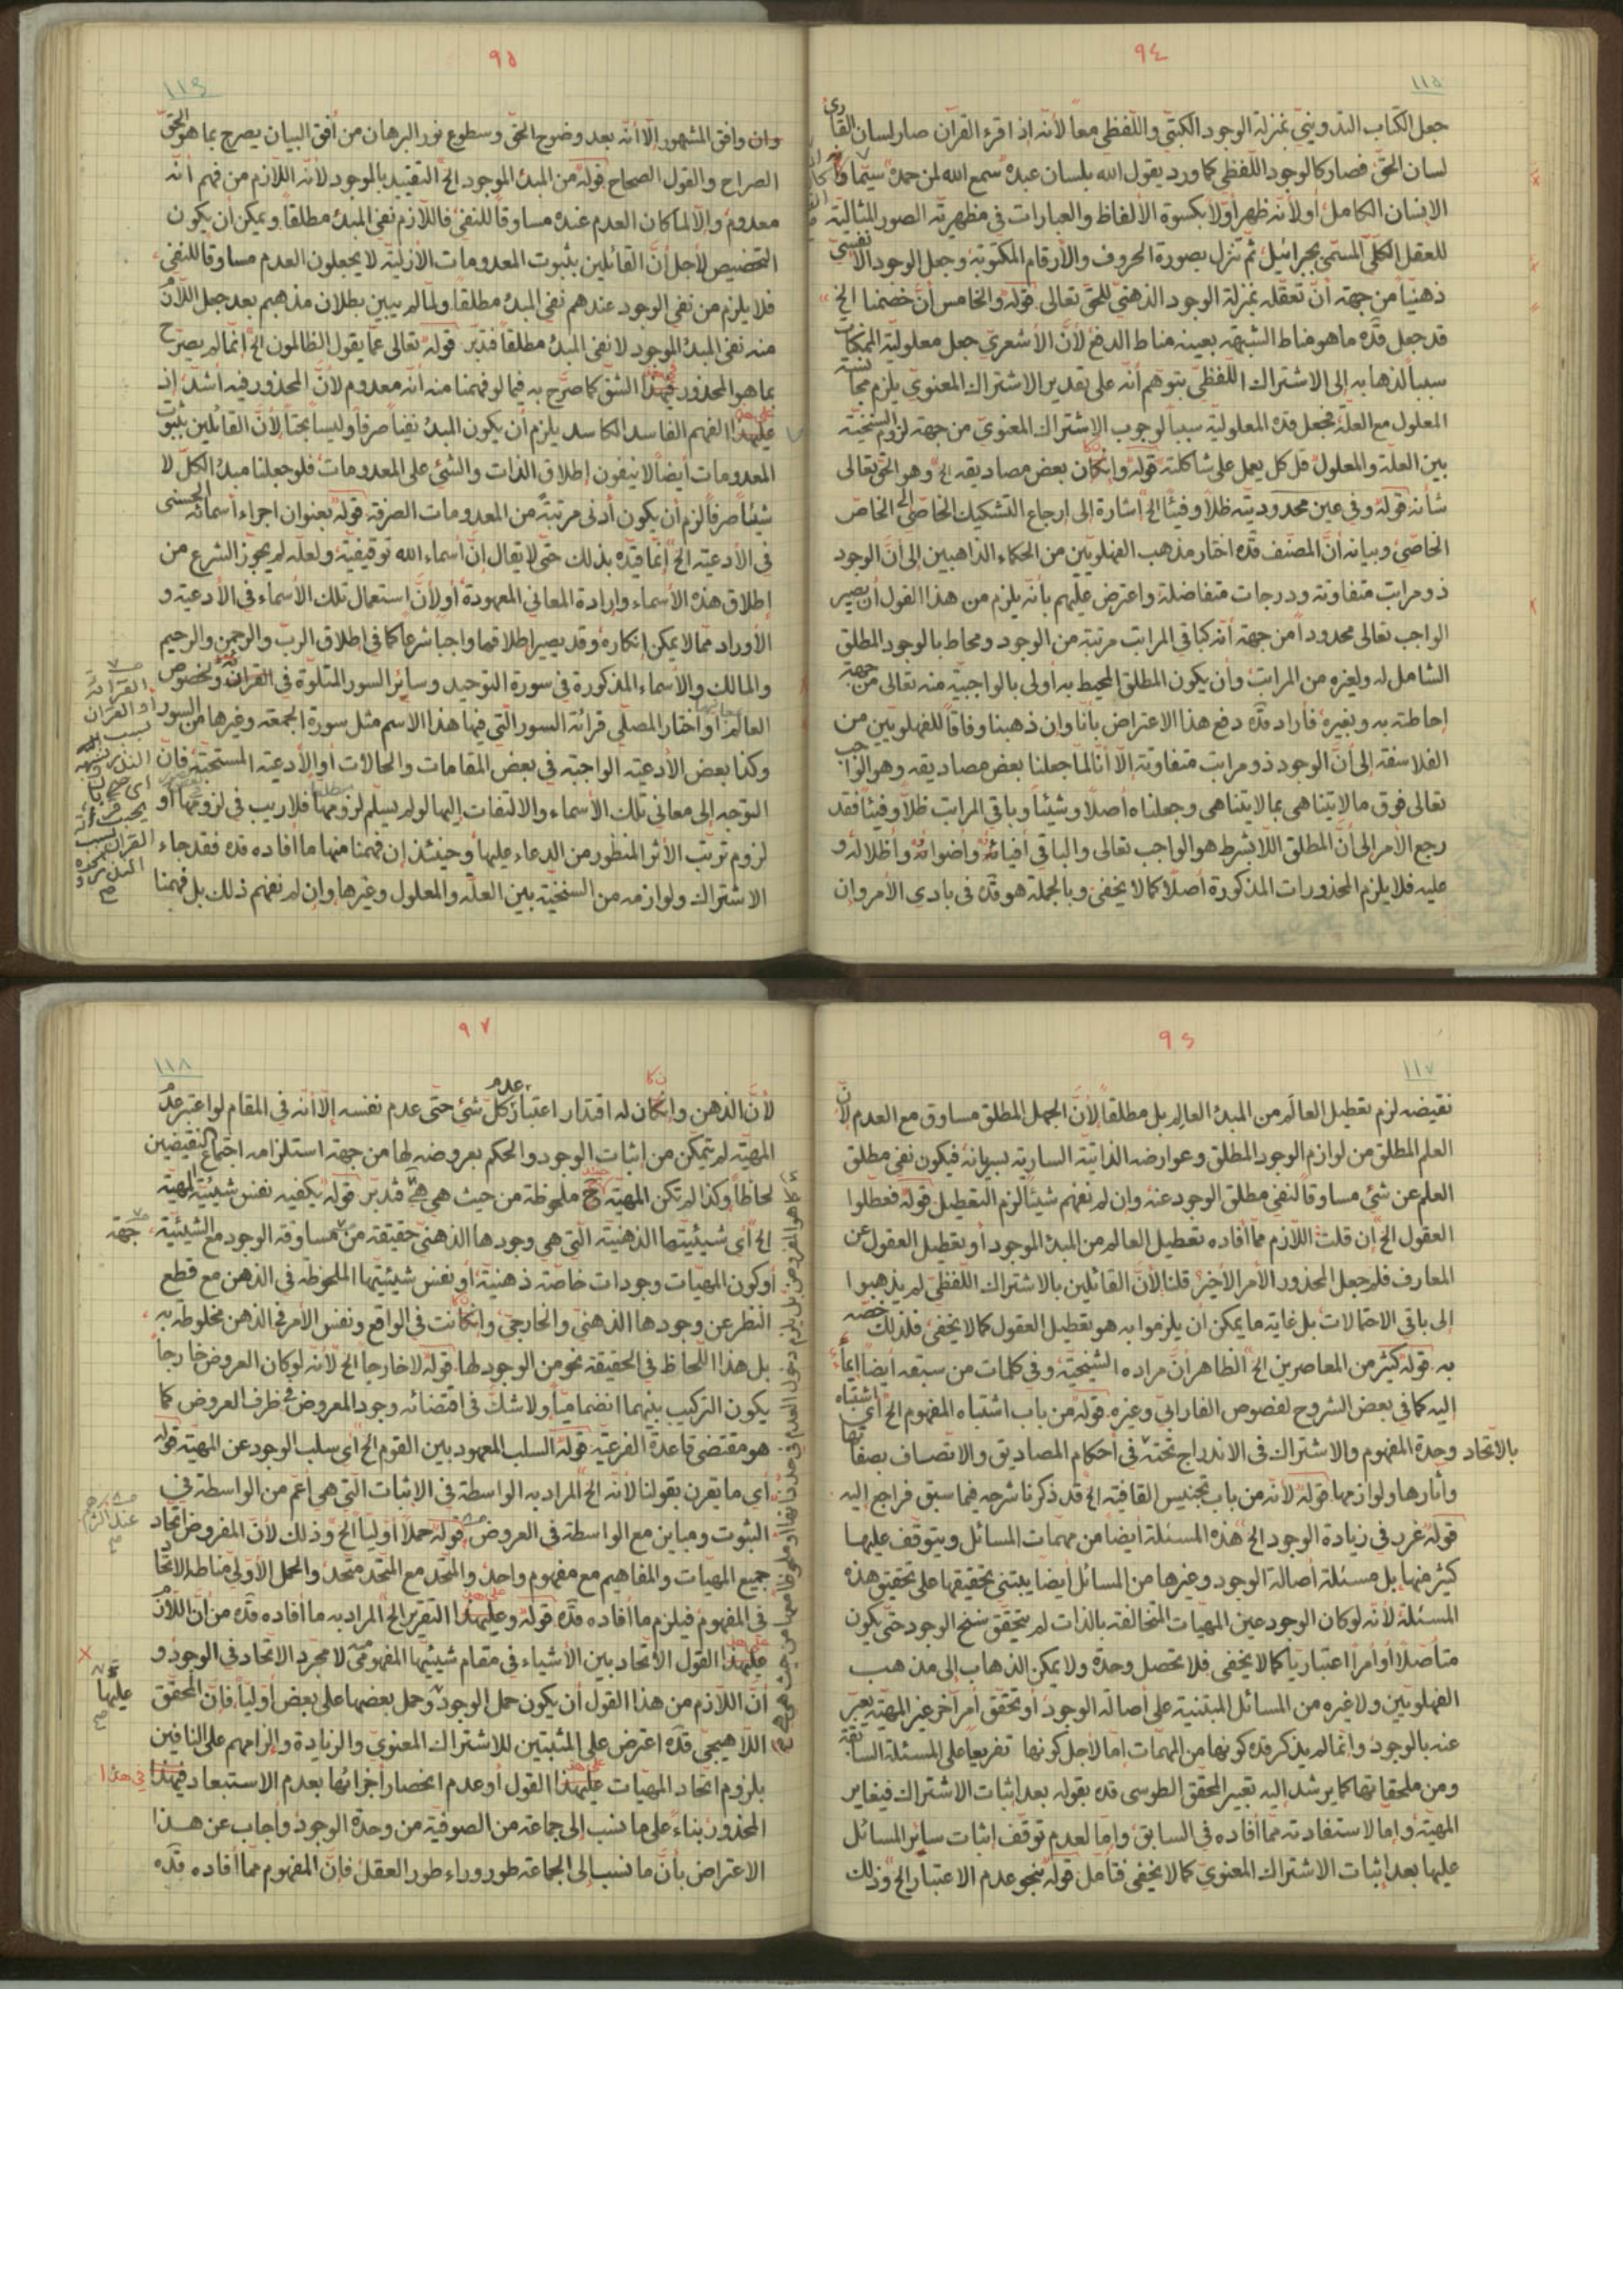 ٩٤
١١٥
جعل الكتاب التدويني بمنزلة الوجود الكتبي واللفظي معاً لأنه إذا قرء القرآن صار لسان القاري
لسان الحق فصار كالوجود اللفظي كما ورد يقول الله بلسان عبده سمع الله لمن حمده سيّما
الإنسان الكامل أو لأنه ظهر أولاً بكسوة الألفاظ والعبارات في مظهرية الصور المثالية
للعقل الكلّي المسمّى بجبرائيل ثم تنزل بصورة الحروف والأرقام المكتوبة وجعل الوجود الأنفسي
ذهنياً من جهة أنّ تعقله بمنزلة الوجود الذهني للحق تعالى قوله والخامس أنّ خصمنا الخ
قد جعل قده ما هو مناط الشبهة بعينه مناط الدفع لأنّ الأشعري جعل معلولية الممكنات
سبباً لذهابه إلى الاشتراك اللفظي بتوهم أنه على تقدير الاشتراك المعنوي يلزم مجانسة
المعلول مع العلة فجعل قده المعلولية سبباً لوجوب الاشتراك المعنوي من جهة لزوم السنخية
بين العلة والمعلول قل كل يعمل على شاكلته قوله وإن كان بعض مصاديقه الخ وهو الحق تعالى
شأنه قوله وفي عين محدوديته ظلاً وفيئاً الخ إشارة إلى إرجاع التشكيك الخاصّي إلى الخاص
الخاصّي وبيانه أنّ المصنف قده اختار مذهب الفهلويين من الحكماء الذاهبين إلى أنّ الوجود
ذو مراتب متفاوتة ودرجات متفاضلة واعترض عليهم بأنه يلزم من هذا القول أن يصير
الواجب تعالى محدوداً من جهة أنه كباقي المراتب مرتبة من الوجود ومحاط بالوجود المطلق
الشامل له ولغيره من المراتب وأن يكون المطلق المحيط به أولى بالواجبية منه تعالى من جهة
إحاطته به وبغيره فأراد قده دفع هذا الاعتراض بأنا وإن ذهبنا وفاقاً للفهلويين من
الفلاسفة إلى أنّ الوجود ذو مراتب متفاوتة إلا أنا لما جعلنا بعض مصاديقه وهو الواجب
تعالى فوق ما لا يتناهى بما لا يتناهى وجعلناه أصلاً وشيئاً وباقي المراتب ظلاً وفيئاً فقد
رجع الأمر إلى أنّ المطلق اللا بشرط هو الواجب تعالى والباقي أفيائه وأضوائه وأظلاله و
عليه فلا يلزم المحذورات المذكورة أصلاً كما لا يخفى وبالجملة هو قده في بادي الأمر وإن
٩٥
١١٦
وإن وافق المشهور إلا أنه بعد وضوح الحق وسطوع نور البرهان من أفق البيان يصرح بما هو الحق
الصراح والقول الصحاح قوله من المبدء الموجود الخ التقييد بالموجود لأنه اللازم من فهم أنه
معدوم وإلا لما كان العدم عنده مساوقاً للنفي فاللازم نفي المبدء مطلقاً ويمكن أن يكون
التخصيص لأجل أنّ القائلين بثبوت المعدومات الأزلية لا يجعلون العدم مساوقاً للنفي
فلا يلزم من نفي الوجود عندهم نفي المبدء مطلقاً ولما لم يبين بطلان مذهبهم بعد جعل اللازم
منه نفي المبدء الموجود لا نفي المبدء مطلقاً فتدبّر قوله تعالى عما يقول الظالمون الخ إنما لم يصرّح
بما هو المحذور في هذا الشق كما صرّح به فيما لو فهمنا منه أنه معدوم لأنّ المحذور فيه أشدّ إذ
على هذا الفهم الفاسد الكاسد يلزم أن يكون المبدء نفياً صرفاً وليساً بحتاً لأنّ القائلين بثبوت
المعدومات أيضاً لا ينفون إطلاق الذات والشيء على المعدومات فلو جعلنا مبدء الكل لا
شيئاً صرفاً لزم أن يكون أدنى مرتبة من المعدومات الصرفة قوله بعنوان إجراء أسمائه الحسنى
في الأدعية الخ إنما قيّده بذلك حتى لا يقال إنّ أسماء الله توقيفية ولعله لم يجوّز الشرع من
إطلاق هذه الأسماء وإرادة المعاني المعهودة أو لأنّ استعمال تلك الأسماء في الأدعية و
الأوراد مما لا يمكن إنكاره وقد يصير إطلاقها واجباً شرعاً كما في إطلاق الربّ والرحمن والرحيم
والمالك والأسماء المذكورة في سورة التوحيد وسائر السور المتلوّة في القرآن وبخصوص
العالم أو اختار المصلّي قرائة السور التي فيها هذا الاسم مثل سورة الجمعة وغيرها من السور
وكذا بعض الأدعية الواجبة في بعض المقامات والحالات أو الأدعية المستحبة فإنّ
التوجه إلى معاني تلك الأسماء والالتفات إليها لو لم يسلم لزومها فلا ريب في لزومها أو
لزوم ترتّب الأثر المنظور من الدعاء عليها وحينئذ إن فهمنا منها ما أفاده قده فقد جاء
الاشتراك ولوازمه من السنخية بين العلة والمعلول وغيرها وإن لم نفهم ذلك بل فهمنا
٩٦
١١٧
نقيضه لزم تعطيل العالم من المبدء العالِم بل مطلقاً لأنّ الجهل المطلق مساوق مع العدم لأنّ
العلم المطلق من لوازم الوجود المطلق وعوارضه الذاتية السارية بسريانه فيكون نفي مطلق
العلم عن شيء مساوقاً لنفي مطلق الوجود عنه وإن لم نفهم شيئاً لزم التعطيل قوله فعطلوا
العقول الخ إن قلت اللازم مما أفاده تعطيل العالم من المبدء الموجود أو تعطيل العقول عن
المعارف فلم جعل المحذور الأمر الأخير قلنا لأنّ القائلين بالاشتراك اللفظي لم يذهبوا
إلى باقي الاحتمالات بل غاية ما يمكن أن يلزموا به هو تعطيل العقول كما لا يخفى فلذلك خصّه
به قوله كثير من المعاصرين الخ الظاهر أنّ مراده الشيخية وفي كلمات من سبقه أيضاً إيماء
إليه كما في بعض الشروح لفصوص الفارابي وغيره قوله من باب اشتباه المفهوم الخ أي اشتباه
بالاتحاد وحدة المفهوم والاشتراك في الاندراج تحته في أحكام المصاديق والاتصاف بصفاتها
وآثارها ولوازمها قوله لأنه من باب تجنيس القافية الخ قد ذكرنا شرحه فيما سبق فراجع إليه
قوله غرر في زيادة الوجود الخ هذه المسئلة أيضاً من مهمات المسائل ويتوقف عليها
كثير منها بل مسئلة أصالة الوجود وغيرها من المسائل أيضاً يبتني تحقيقها على تحقيق هذه
المسئلة لأنه لو كان الوجود عين المهيات المتخالفة بالذات لم يتحقق سنخ الوجود حتى يكون
متأصلاً أو أمراً اعتبارياً كما لا يخفى فلا تحصل وحدة ولا يمكن الذهاب إلى مذهب
الفهلويين ولا غيره من المسائل المبتنية على أصالة الوجود أو تحقق أمر آخر غير المهية يعبّر
عنه بالوجود وإنما لم يذكر قده كونها من المهمات إما لأجل كونها تفريعاً على المسئلة السابقة
ومن ملحقاتها كما يرشد إليه تعبير المحقق الطوسي قده بقوله بعد إثبات الاشتراك فيغاير
المهية وإما لاستفادته مما أفاده في السابق وإما لعدم توقف إثبات سائر المسائل
عليها بعد إثبات الاشتراك المعنوي كما لا يخفى فتأمل قوله بنحو عدم الاعتبار الخ وذلك
٩٧
١١٨
لأنّ الذهن وإن كان له اقتدار اعتبار عدم كل شيء حتى عدم نفسه إلا أنه في المقام لو اعتبر عدم
المهية لم يتمكن من إثبات الوجود والحكم بعروضه لها من جهة استلزامه اجتماع النقيضين
لحاظاً وكذا لم تكن المهية ح ملحوظة من حيث هي هي فتدبّر قوله يكفيه نفس شيئية المهية
الخ أي شيئيتها الذهنية التي هي وجودها الذهني حقيقة من جهة مساوقة الوجود مع الشيئية
أو كون المهيات وجودات خاصة ذهنية أو نفس شيئيتها الملحوظة في الذهن مع قطع
النظر عن وجودها الذهني والخارجي وإن كانت في الواقع ونفس الأمر في الذهن مخلوطة به
بل هذا اللحاظ في الحقيقة نحو من الوجود لها قوله لا خارجاً الخ لأنه لو كان العروض خارجاً
يكون التركيب بينهما انضمامياً ولا شك في اقتضائه وجود المعروض في ظرف العروض كما
هو مقتضى قاعدة الفرعية قوله السلب المعهود بين القوم الخ أي سلب الوجود عن المهية قوله
أي ما يقرن بقولنا لأنه الخ المراد به الواسطة في الإثبات التي هي أعم من الواسطة في
الثبوت ومباين مع الواسطة في العروض قوله حملاً أولياً الخ وذلك لأنّ المفروض اتحاد
جميع المهيات والمفاهيم مع مفهوم واحد والمتحد مع المتحد متحد والحمل الأولي مناطه الاتحاد
في المفهوم فيلزم ما أفاده قده قوله وعلى هذا التقرير الخ المراد به ما أفاده قده من أنّ اللازم
على هذا القول الاتحاد بين الأشياء في مقام شيئيتها المفهومي لا مجرد الاتحاد في الوجود و
أنّ اللازم من هذا القول أن يكون حمل الوجود وحمل بعضها على بعض أولياً فإنّ المحقق
اللاهيجي قده اعترض على المثبتين للاشتراك المعنوي والزيادة وإلزامهم على النافين
بلزوم اتحاد المهيات على هذا القول أو عدم انحصار أجزائها بعدم الاستبعاد في هذا
المحذور بناء على ما نسب إلى جماعة من الصوفية من وحدة الوجود وأجاب عن هذا
الاعتراض بأنّ ما نسب إلى الجماعة طور وراء طور العقل فإنّ المفهوم مما أفاده قده